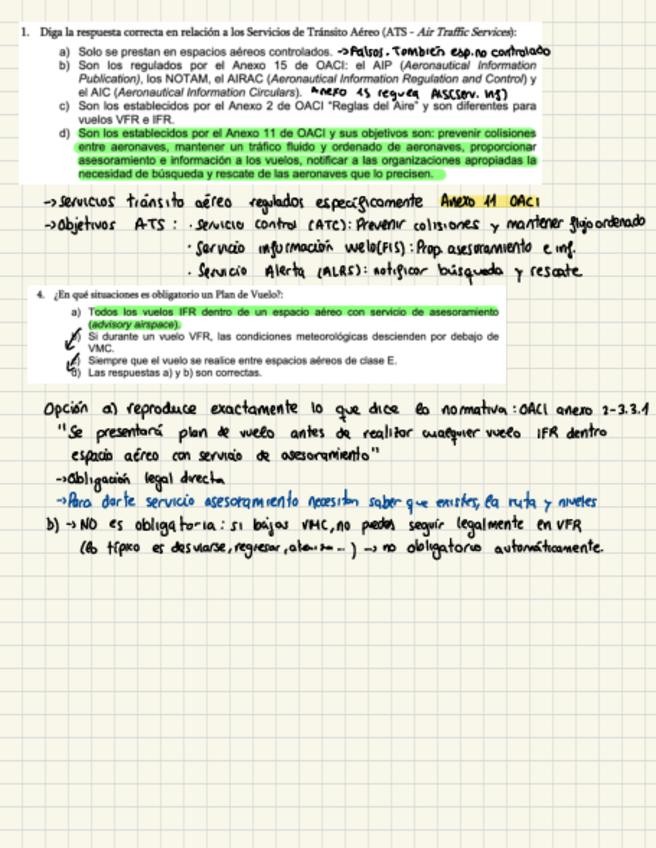 1. Diga la respuesta correcta en relación a los Servicios de Tránsito Aéreo (ATS - Air Traffic Services):
a) Solo se prestan en espacios aéreos controlados. →Falsos. También esp.no controlado
b) Son los regulados por el Anexo 15 de OACI: el AIP (Aeronautical Information
Publication), los NOTAM, el AIRAC (Aeronautical Information Regulation and Control) y
el AIC (Aeronautical Information Circulars). Anexo 15 regula AIS(serv. inf)
c) Son los establecidos por el Anexo 2 de OACI "Reglas del Aire" y son diferentes para
vuelos VFR e IFR.
d) Son los establecidos por el Anexo 11 de OACI y sus objetivos son: prevenir colisiones
entre aeronaves, mantener un tráfico fluido y ordenado de aeronaves, proporcionar
asesoramiento e información a los vuelos, notificar a las organizaciones apropiadas la
necesidad de búsqueda y rescate de las aeronaves que lo precisen.
→Servicios tránsito aéreo regulados específicamente Anexo 11 OACI
→Objetivos ATS : · Servicio control (ATC): Prevenir colisiones y mantener flujo ordenado
· Servicio información vuelo(FIS) : Prop. asesoramiento e inf.
· Servicio Alerta (ALRS): notificar búsqueda y rescate
4. ¿En qué situaciones es obligatorio un Plan de Vuelo?:
a) Todos los vuelos IFR dentro de un espacio aéreo con servicio de asesoramiento
(advisory airspace).
b) Si durante un vuelo VFR, las condiciones meteorológicas descienden por debajo de
VMC.
c) Siempre que el vuelo se realice entre espacios aéreos de clase E.
d) Las respuestas a) y b) son correctas.
Opción a) reproduce exactamente lo que dice la normativa : OACI anexo 2-3.3.1
"Se presentará plan de vuelo antes de realizar cualquier vuelo IFR dentro
espacio aéreo con servicio de asesoramiento"
→Obligación legal directa
→Para darte servicio asesoramiento necesitan saber que existes, la ruta y niveles
b) → NO es obligatoria : si bajas VMC, no puedes seguir legalmente en VFR
(lo típico es desviarse, regresar, ...) → no obligatorio automáticamente.